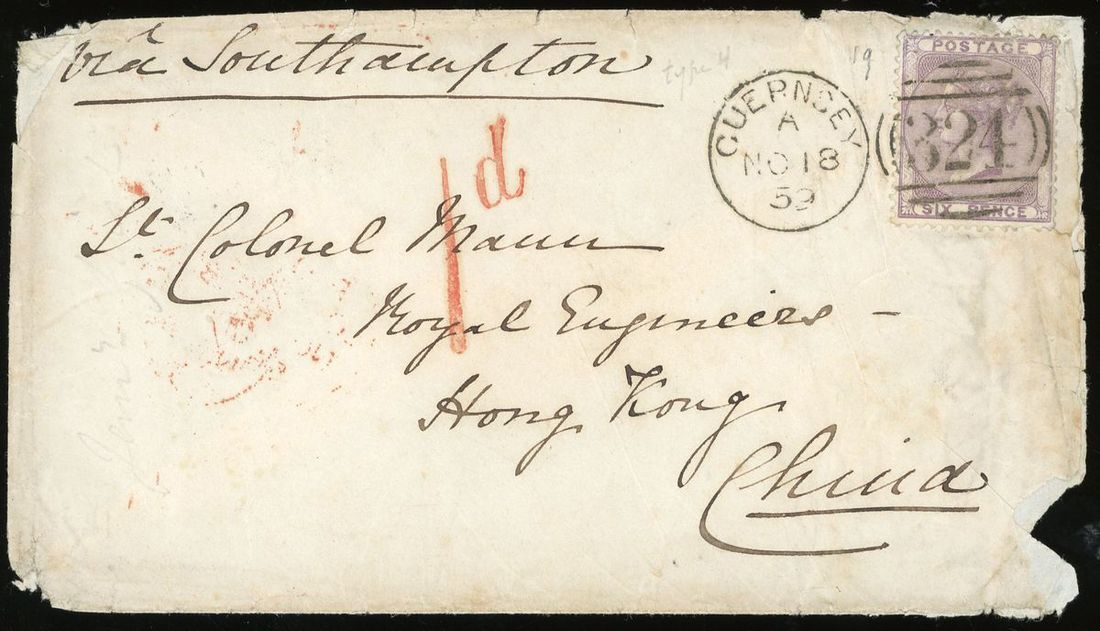 viâ Southampton
type 4
19
POSTAGE
324
SIX PENCE
GUERNSEY
A
NO 18
59
1d
Lt. Colonel Mann
Royal Engineers -
Hong Kong
China